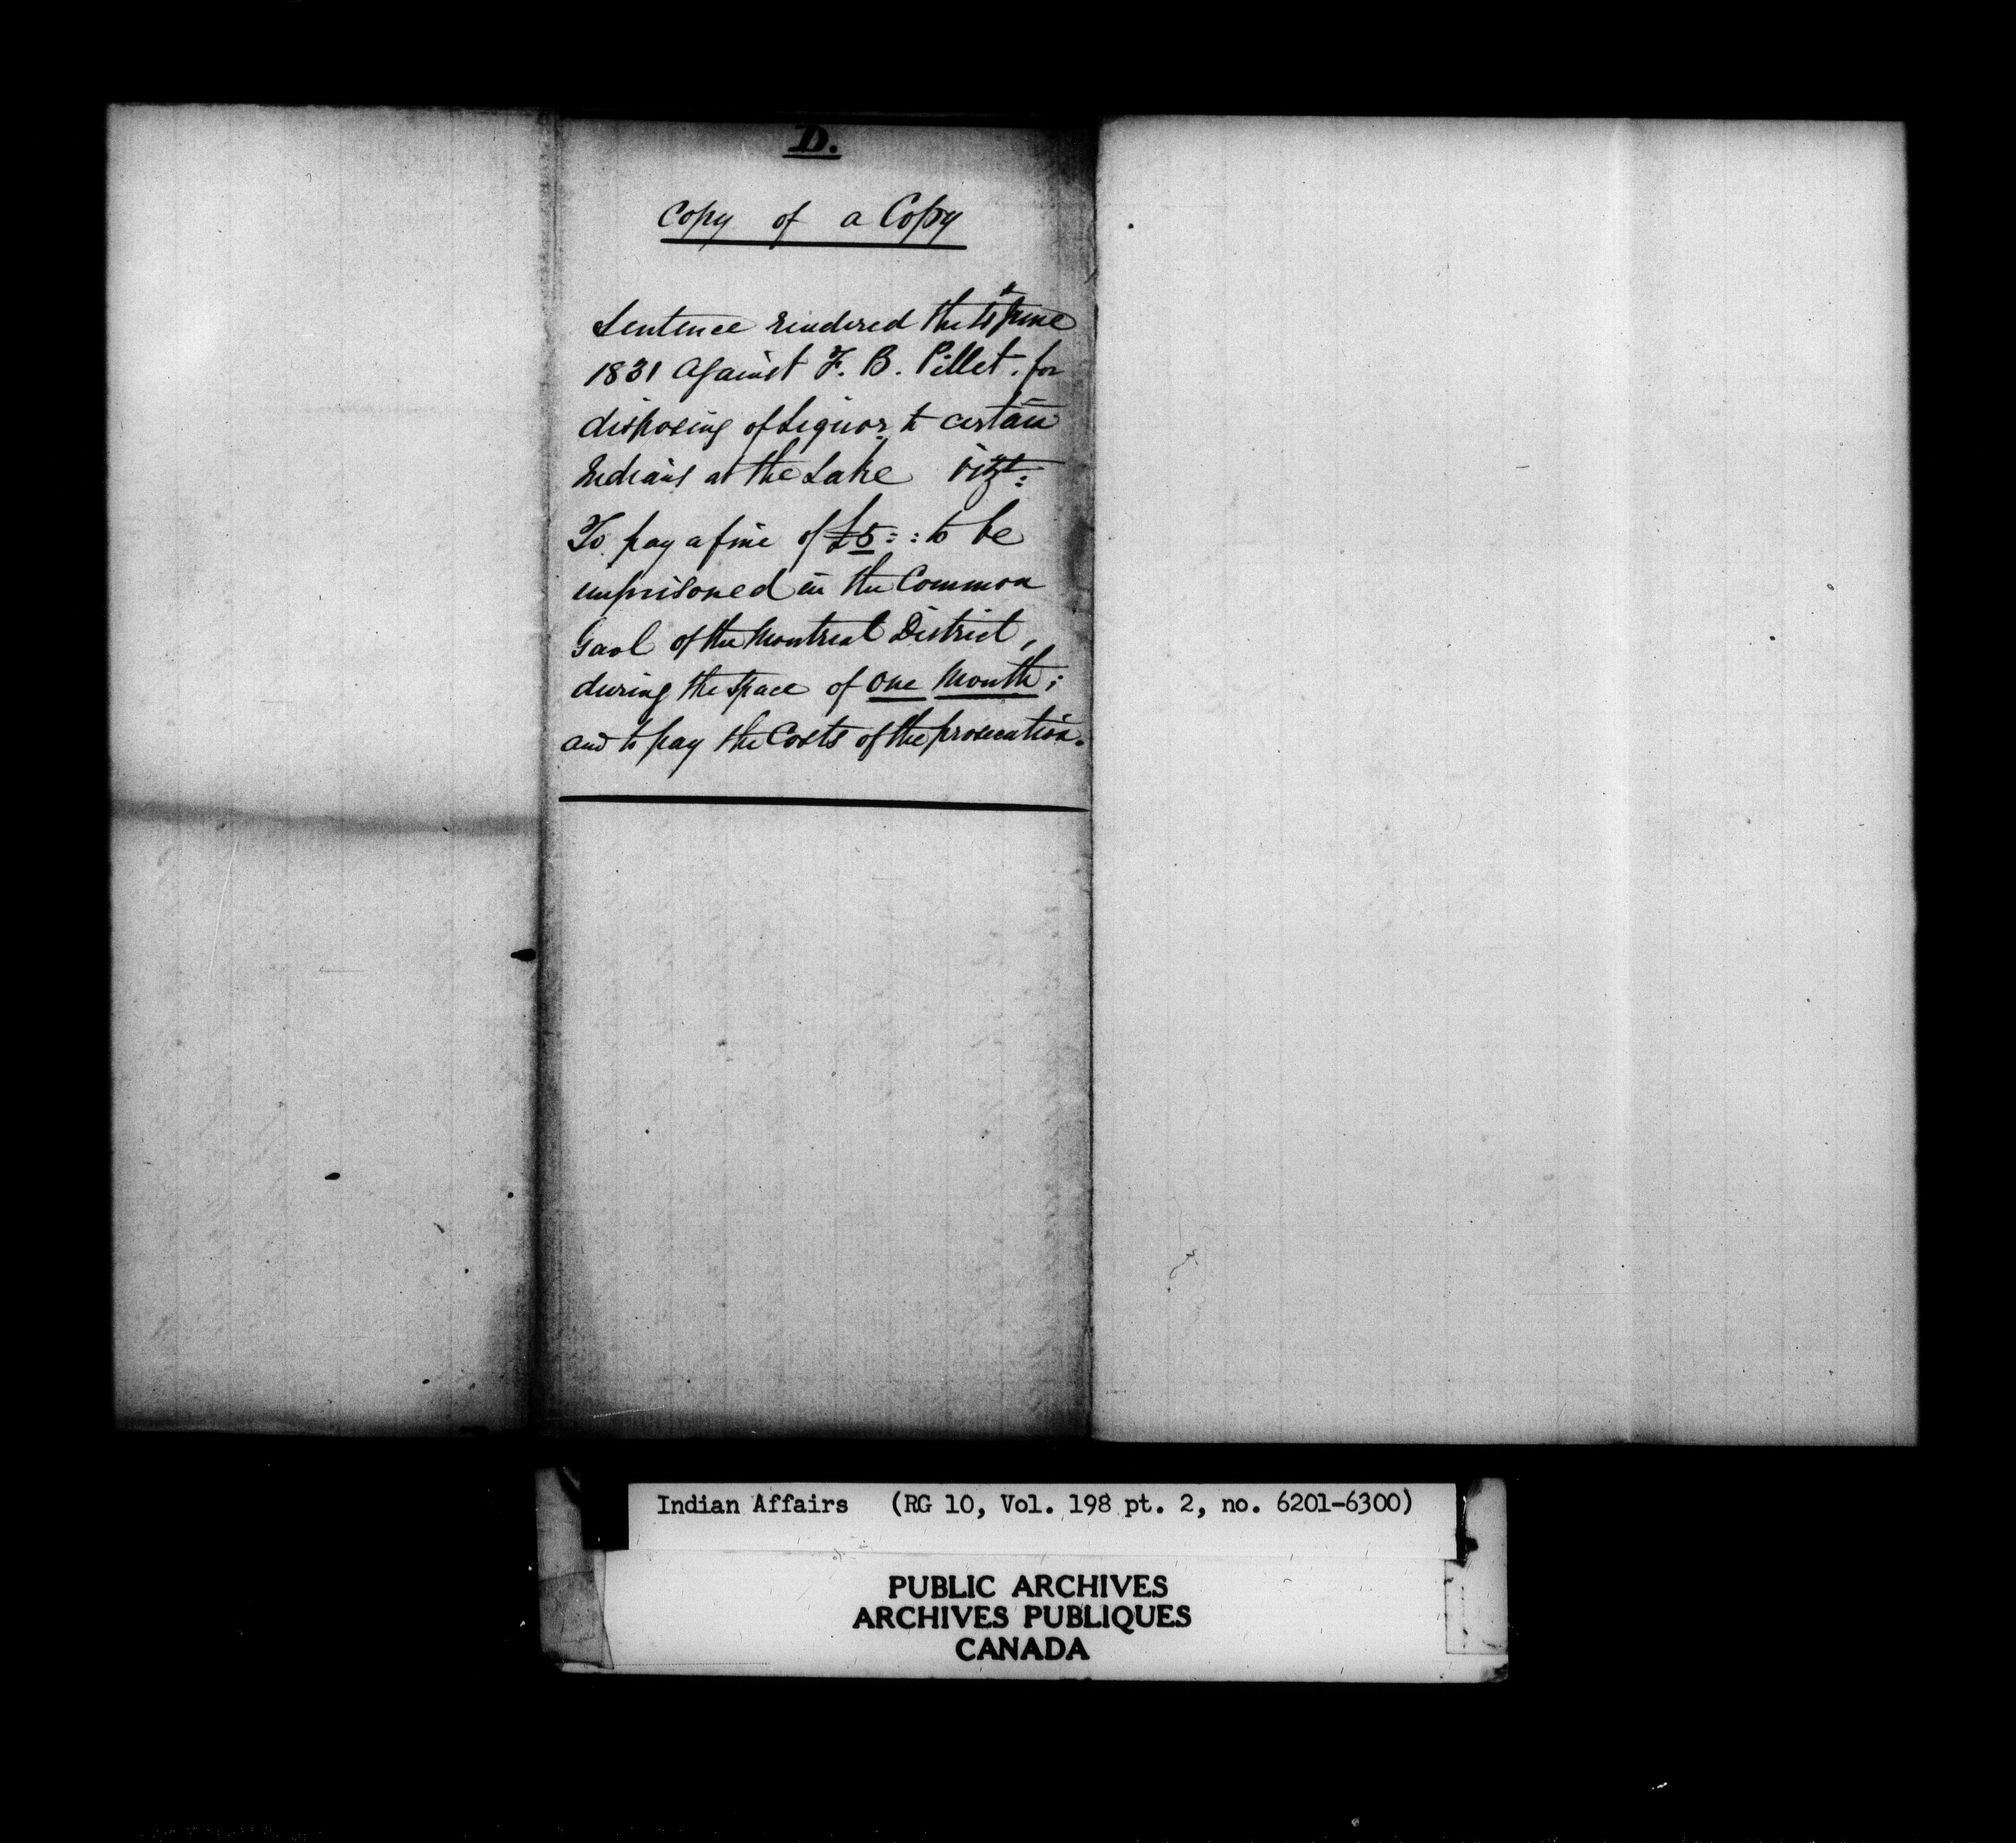 D.
Copy of a Copy
Sentence rendered the June
1831 against F. B. Pillet. for
disposing of Liquor to certain
Indians at the Lake Vizt:
To pay a fine of £5 : : to be
imprisoned in the Common
Gaol of the Montreal District,
during the space of one Month;
and to pay the Costs of the prosecution.
Indian Affairs (RG 10, Vol. 198 pt. 2, no. 6201-6300)
PUBLIC ARCHIVES
ARCHIVES PUBLIQUES
CANADA